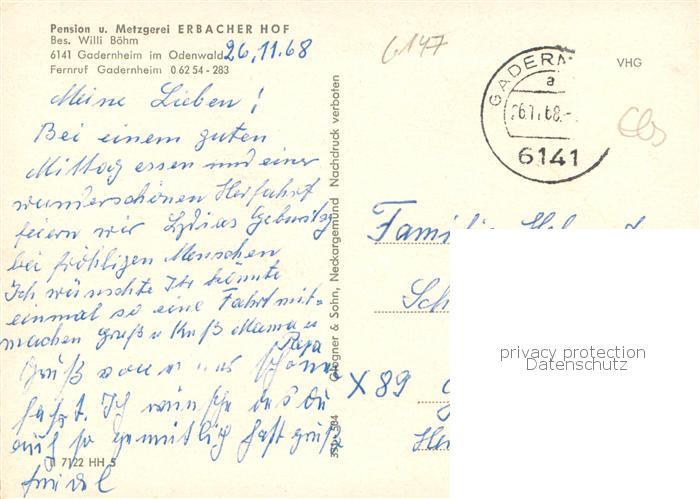 Pension u. Metzgerei ERBACHER HOF
Bes. Willi Böhm
6141 Gadernheim im Odenwald
Fernruf Gadernheim 0 62 54 - 283
26.11.68
6147
VHG
GADERN
a
26.11.68.-
6141
Meine Lieben!
Bei einem guten
Mittag essen und einer
wunderschönen Herfahrt
feiern wir Lydias Geburtstag
bei fröhligen Menschen
Ich wünschte Ihr könnte
einmal so eine Fahrt mit-
machen Gruß u Kuß Mama u
Papa
Gruß von
fahrt. Ich wünsche das Du
auch so gemütlich
Nachdruck verboten
Glogner & Sohn, Neckargemünd
Familie
Sch
X 89
privacy protection
Datenschutz
7122 HH 5